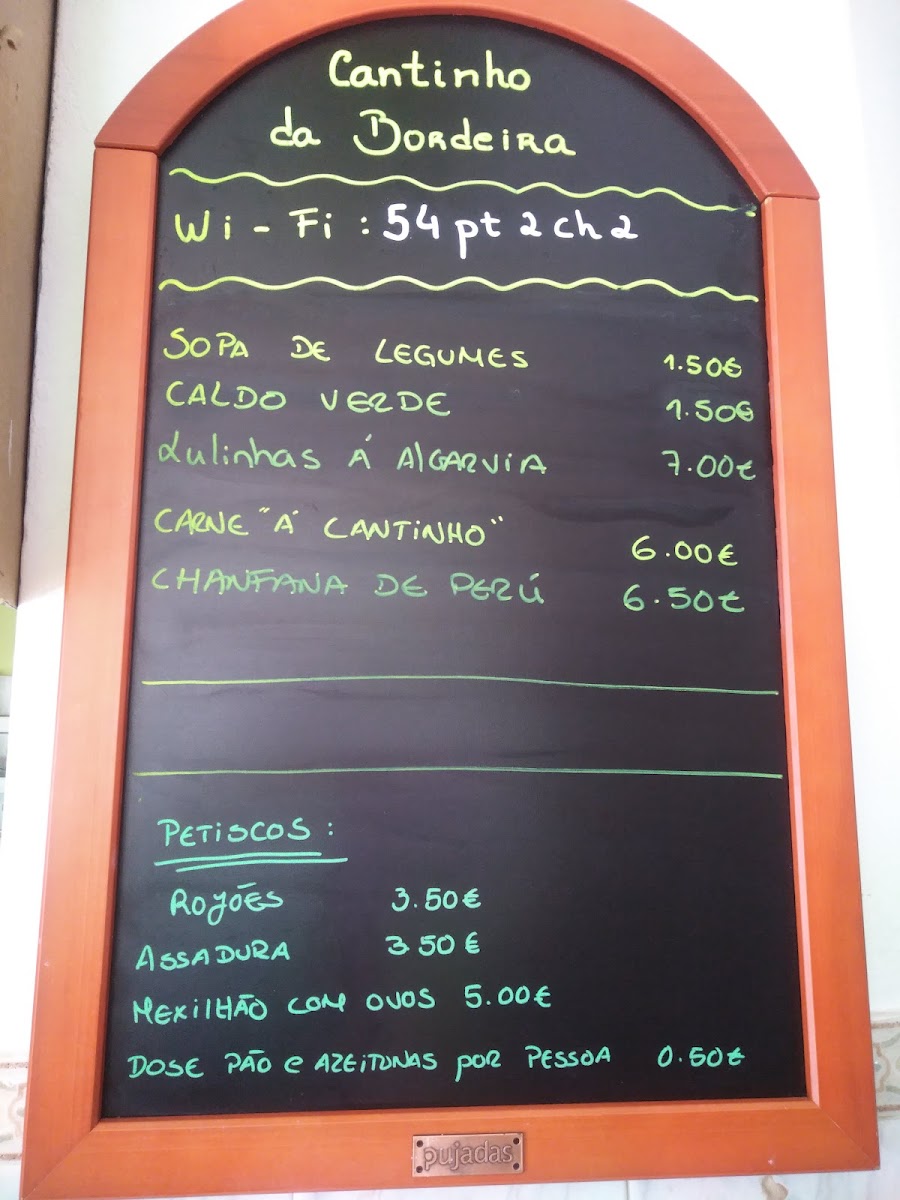 Cantinho
da Bordeira
Wi - Fi : 54pt2ch2
SOPA DE LEGUMES 1.50€
CALDO VERDE 1.50€
Lulinhas Á AlGARViA 7.00€
CARNE "Á CANTiNHO" 6.00€
CHANFANA DE PERÚ 6.50€
PETISCOS :
ROJÕES 3.50€
ASSADURA 3 50 €
MEXiLHÃO COM OVOS 5.00€
DOSE PÃO e AZEITONAS por PESSOA 0.50€
pujadas